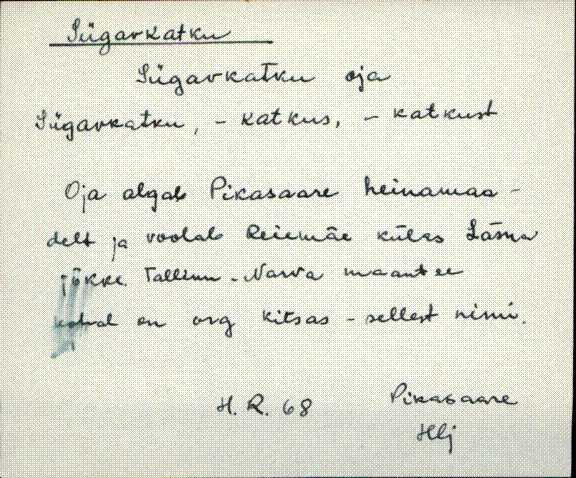 Sügavkatku
Sügavkatku oja
Sügavkatku, - katkus, - katkust
Oja algab Pikasaare heinamaa-
delt ja voolab külas
jõkke. Tallinn - Narva maantee
kohal on org kitsas - sellest nimi.
H. R. 68 Pikasaare
Hlj